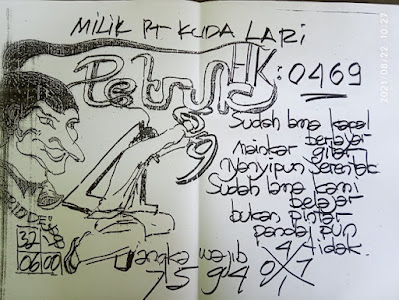 MILIK PT KUDA LARI
HK: 0469
9
Sudah lama kapal
berlayar
mainkan gitar
nyanyipun serentak
Sudah lama kami
belajar
bukan pintar
pandai pun
tidak.
angka wajib
75 94 0 4 7
32
06 00
2021/08/22 10:27